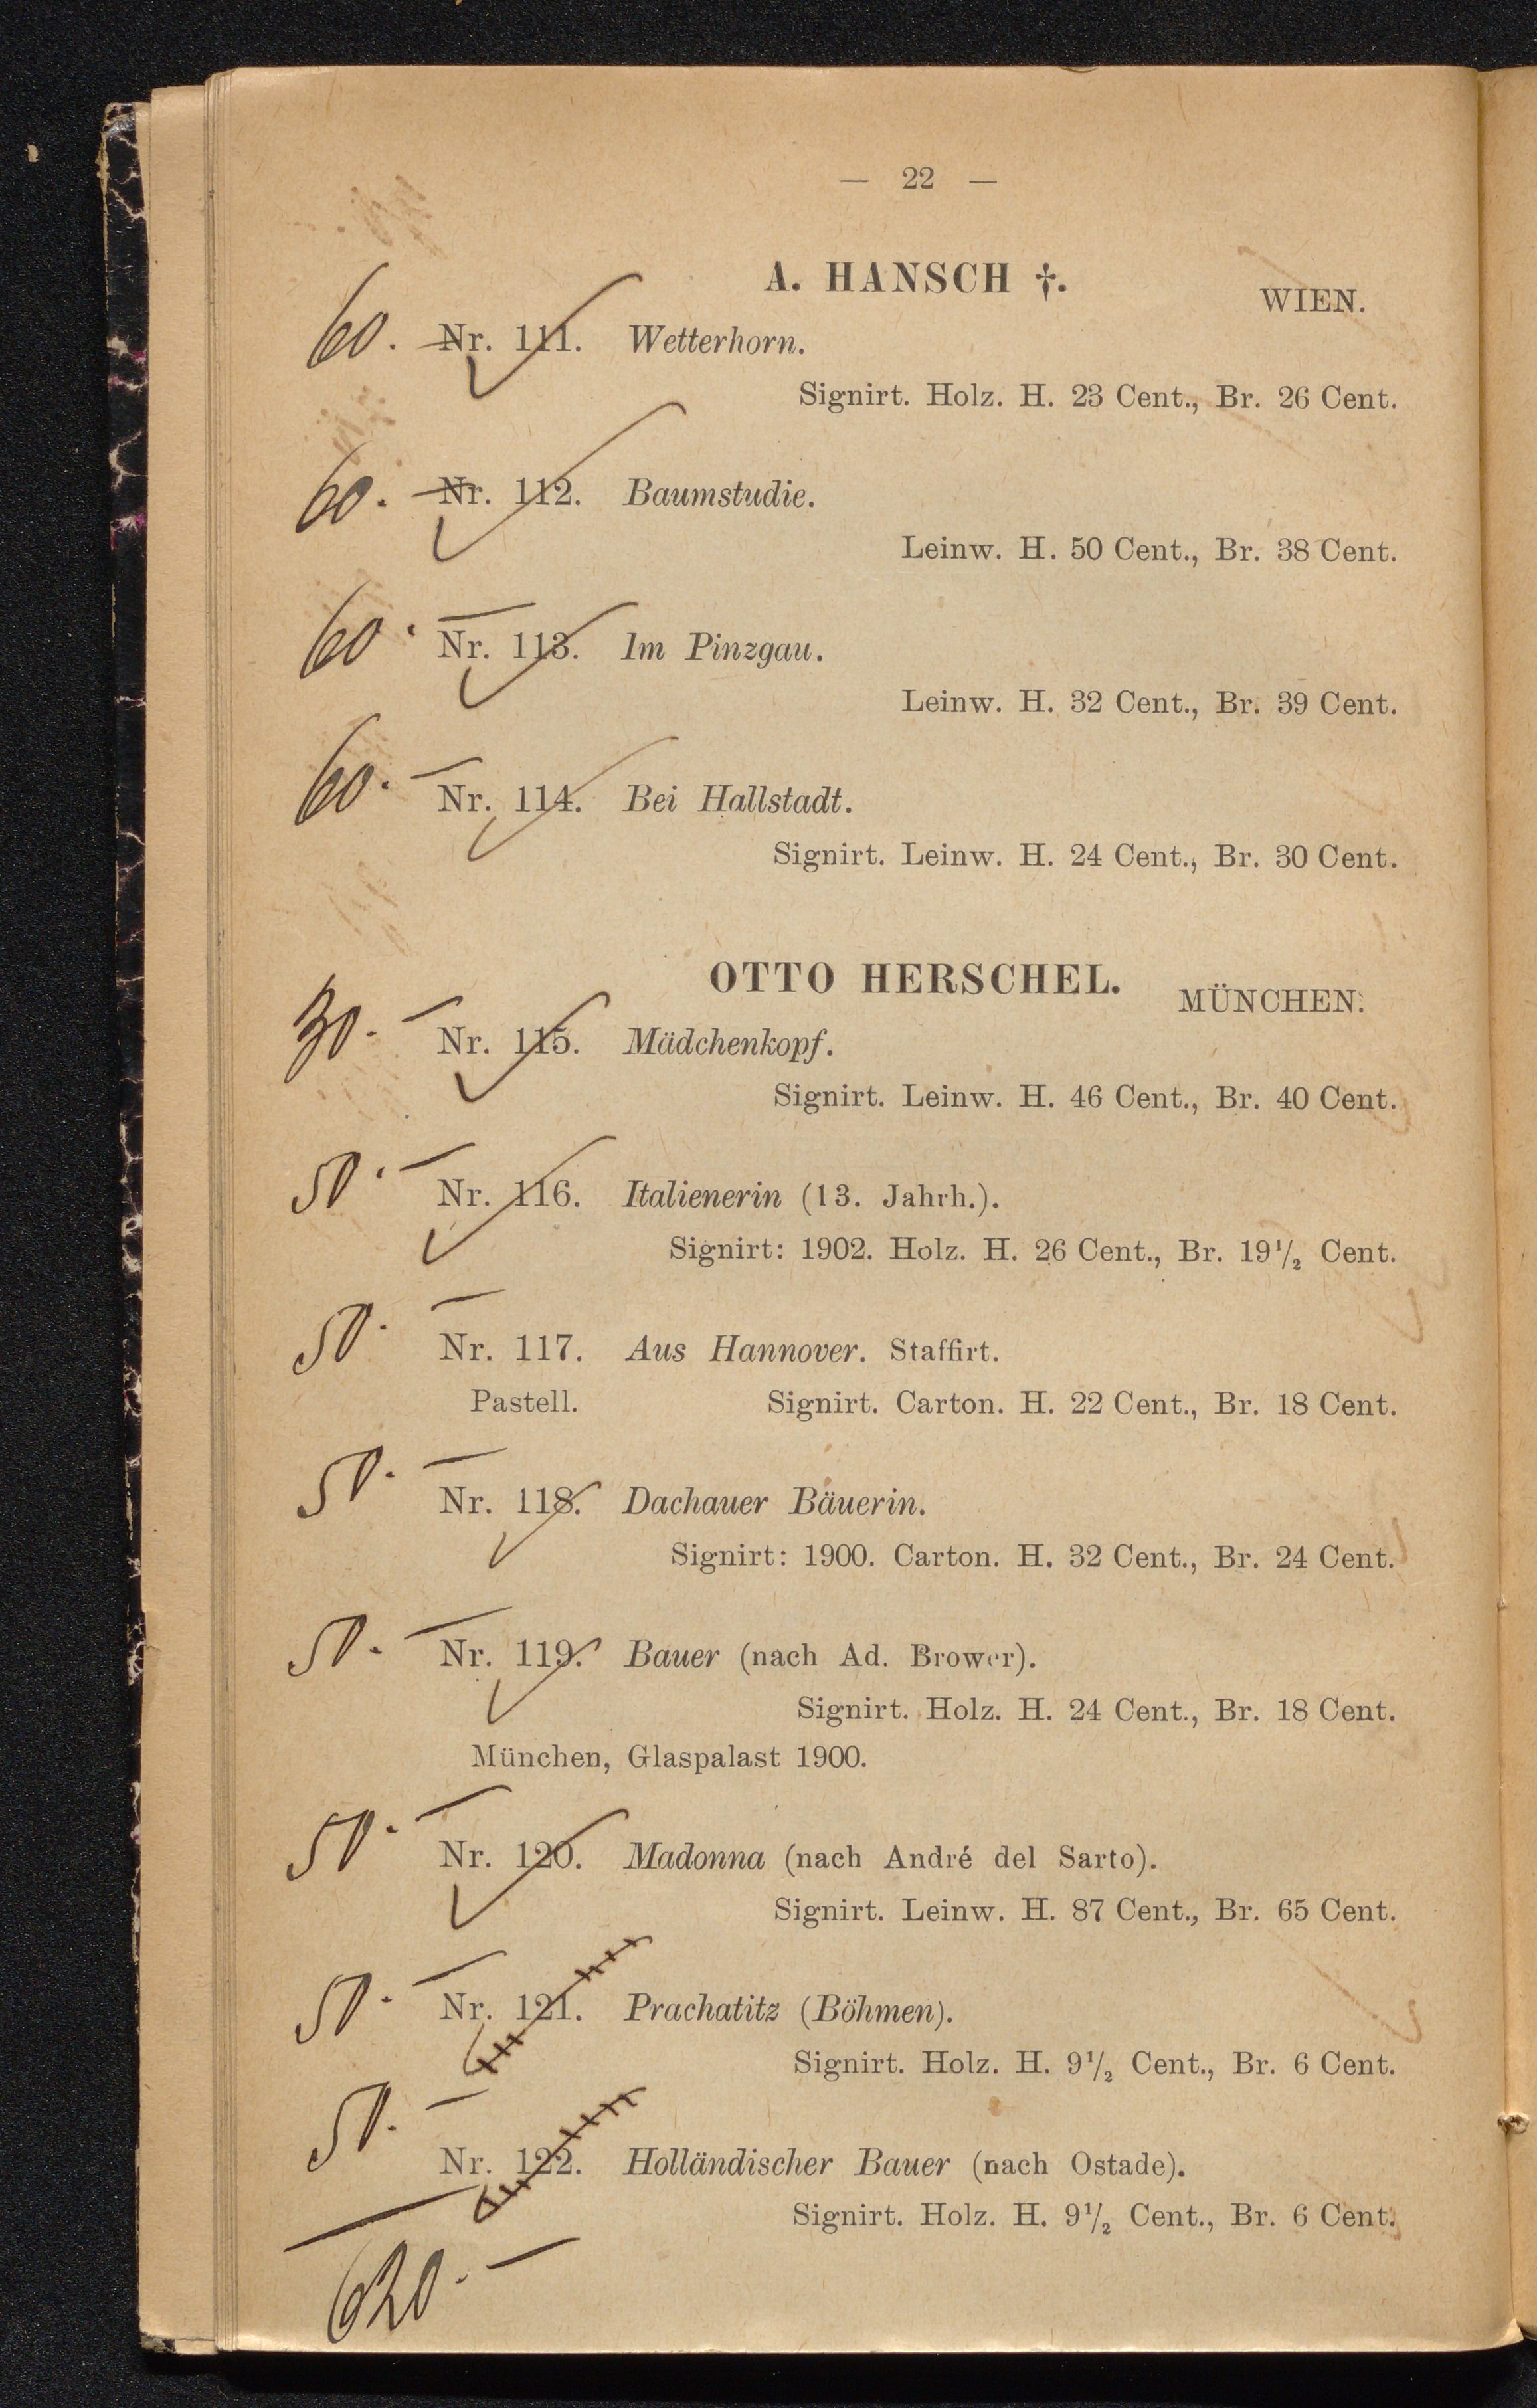 — 22 —
A. HANSCH †.
WIEN.
60. — Nr. 111. Wetterhorn.
Signirt. Holz. H. 23 Cent., Br. 26 Cent.
60. — Nr. 112. Baumstudie.
Leinw. H. 50 Cent., Br. 38 Cent.
60. — Nr. 113. Im Pinzgau.
Leinw. H. 32 Cent., Br. 39 Cent.
60. — Nr. 114. Bei Hallstadt.
Signirt. Leinw. H. 24 Cent., Br. 30 Cent.
OTTO HERSCHEL.
MÜNCHEN.
30. — Nr. 115. Mädchenkopf.
Signirt. Leinw. H. 46 Cent., Br. 40 Cent.
50. — Nr. 116. Italienerin (13. Jahrh.).
Signirt: 1902. Holz. H. 26 Cent., Br. 19½ Cent.
50. — Nr. 117. Aus Hannover. Staffirt.
Pastell. Signirt. Carton. H. 22 Cent., Br. 18 Cent.
50. — Nr. 118. Dachauer Bäuerin.
Signirt: 1900. Carton. H. 32 Cent., Br. 24 Cent.
50. — Nr. 119. Bauer (nach Ad. Brower).
Signirt. Holz. H. 24 Cent., Br. 18 Cent.
München, Glaspalast 1900.
50. — Nr. 120. Madonna (nach André del Sarto).
Signirt. Leinw. H. 87 Cent., Br. 65 Cent.
50. — Nr. 121. Prachatitz (Böhmen).
Signirt. Holz. H. 9½ Cent., Br. 6 Cent.
50. — Nr. 122. Holländischer Bauer (nach Ostade).
Signirt. Holz. H. 9½ Cent., Br. 6 Cent.
620. —